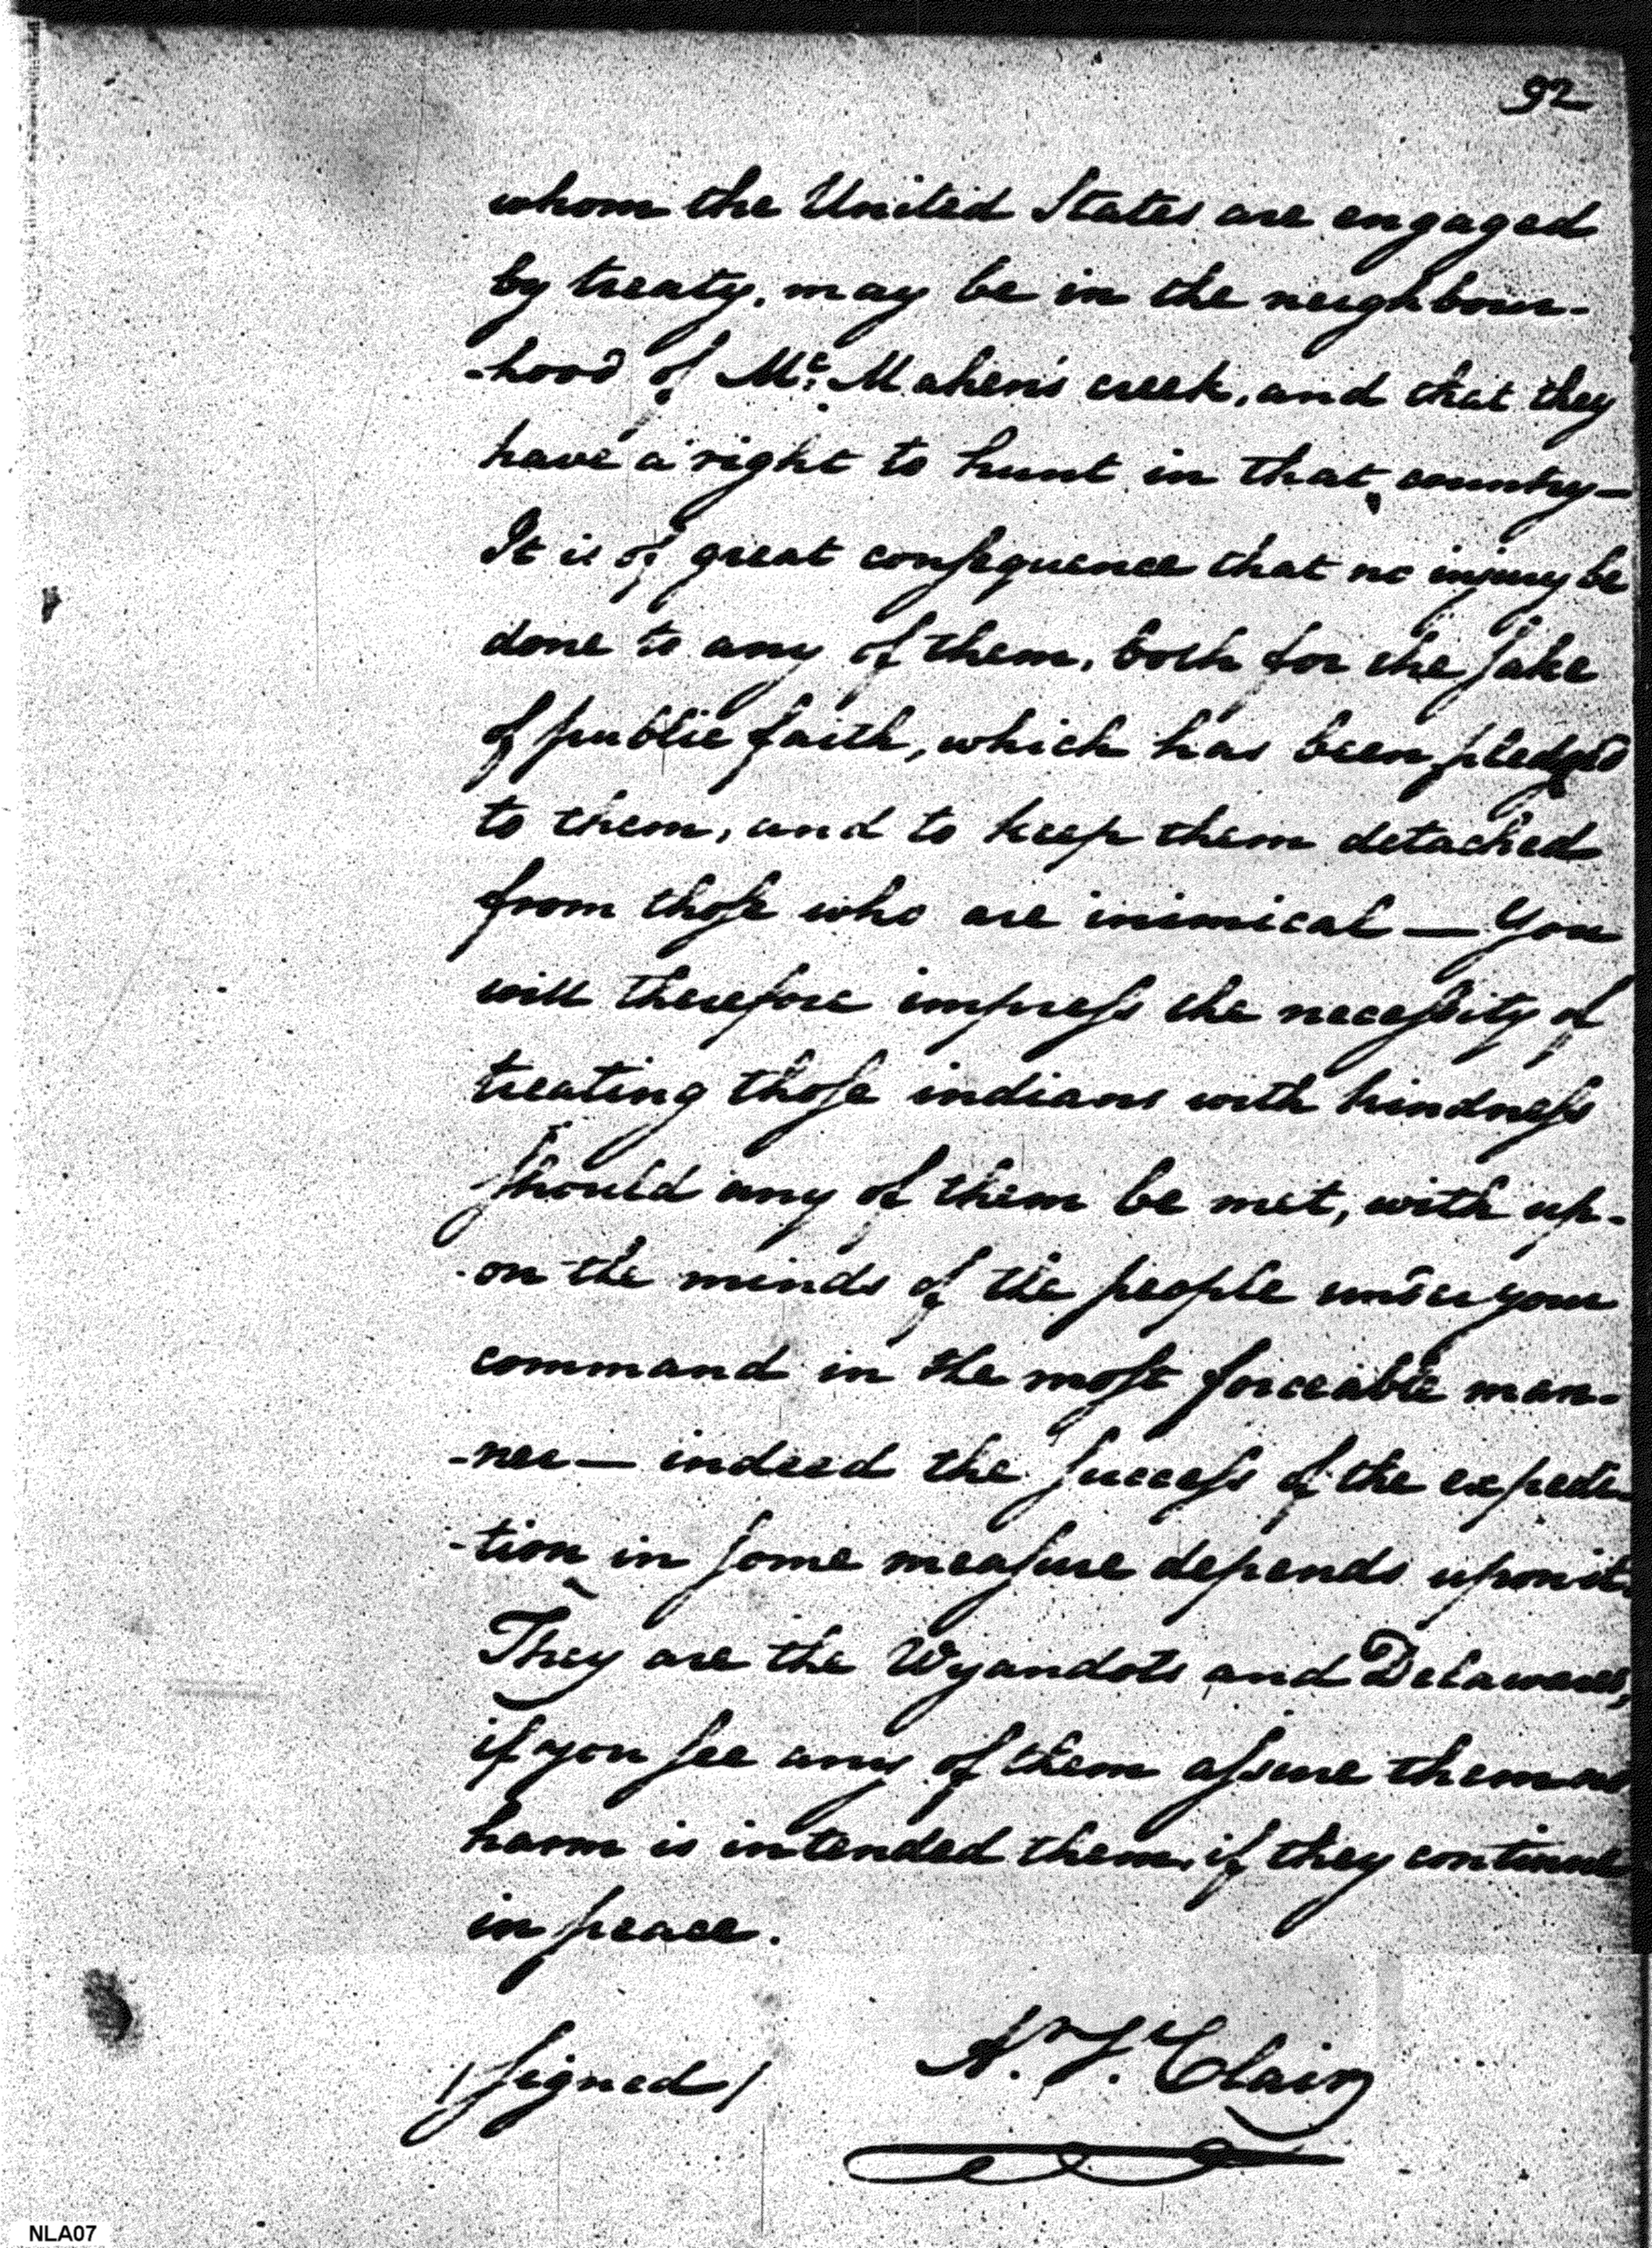 92
whom the United States are engaged
by treaty, may be in the neighbour-
-hood of Mc. Mahen's creek, and that they
have a right to hunt in that country—
It is of great consequence that no injury be
done to any of them, both for the sake
of public faith, which has been pledged
to them, and to keep them detached
from those who are inimical — You
will therefore impress the necessity of
treating those indians with kindness
should any of them be met, with up-
-on the minds of the people under your
command in the most forceable man-
-ner — indeed the success of the expedi-
-tion in some measure depends upon it
They are the Wyandots and Delawares,
if you see any of them assure them no
harm is intended them, if they continue
in peace.
/signed/ Ar. St. Clair
NLA07